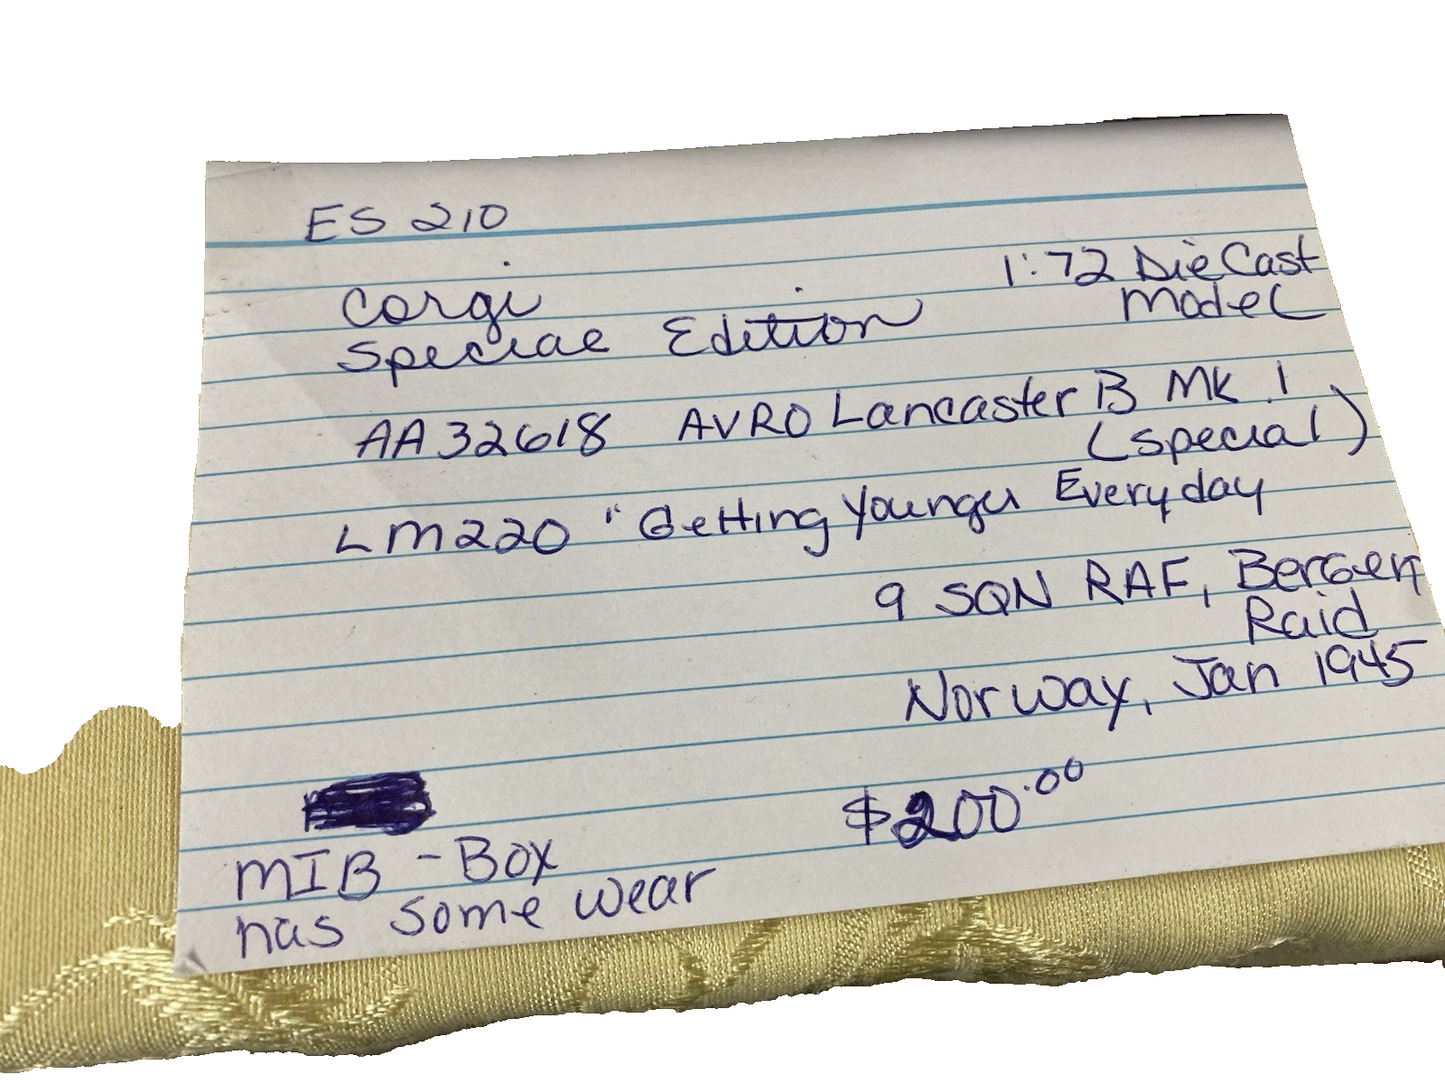 ES 210
1:72 Die Cast
Model
Corgi
Special Edition
AA32618 AVRO Lancaster B MK.1
(special)
LM220 "Getting Younger Everyday
9 SQN RAF, Bergen
Raid
Norway, Jan 1945
$200.00
MIB - Box
has some wear